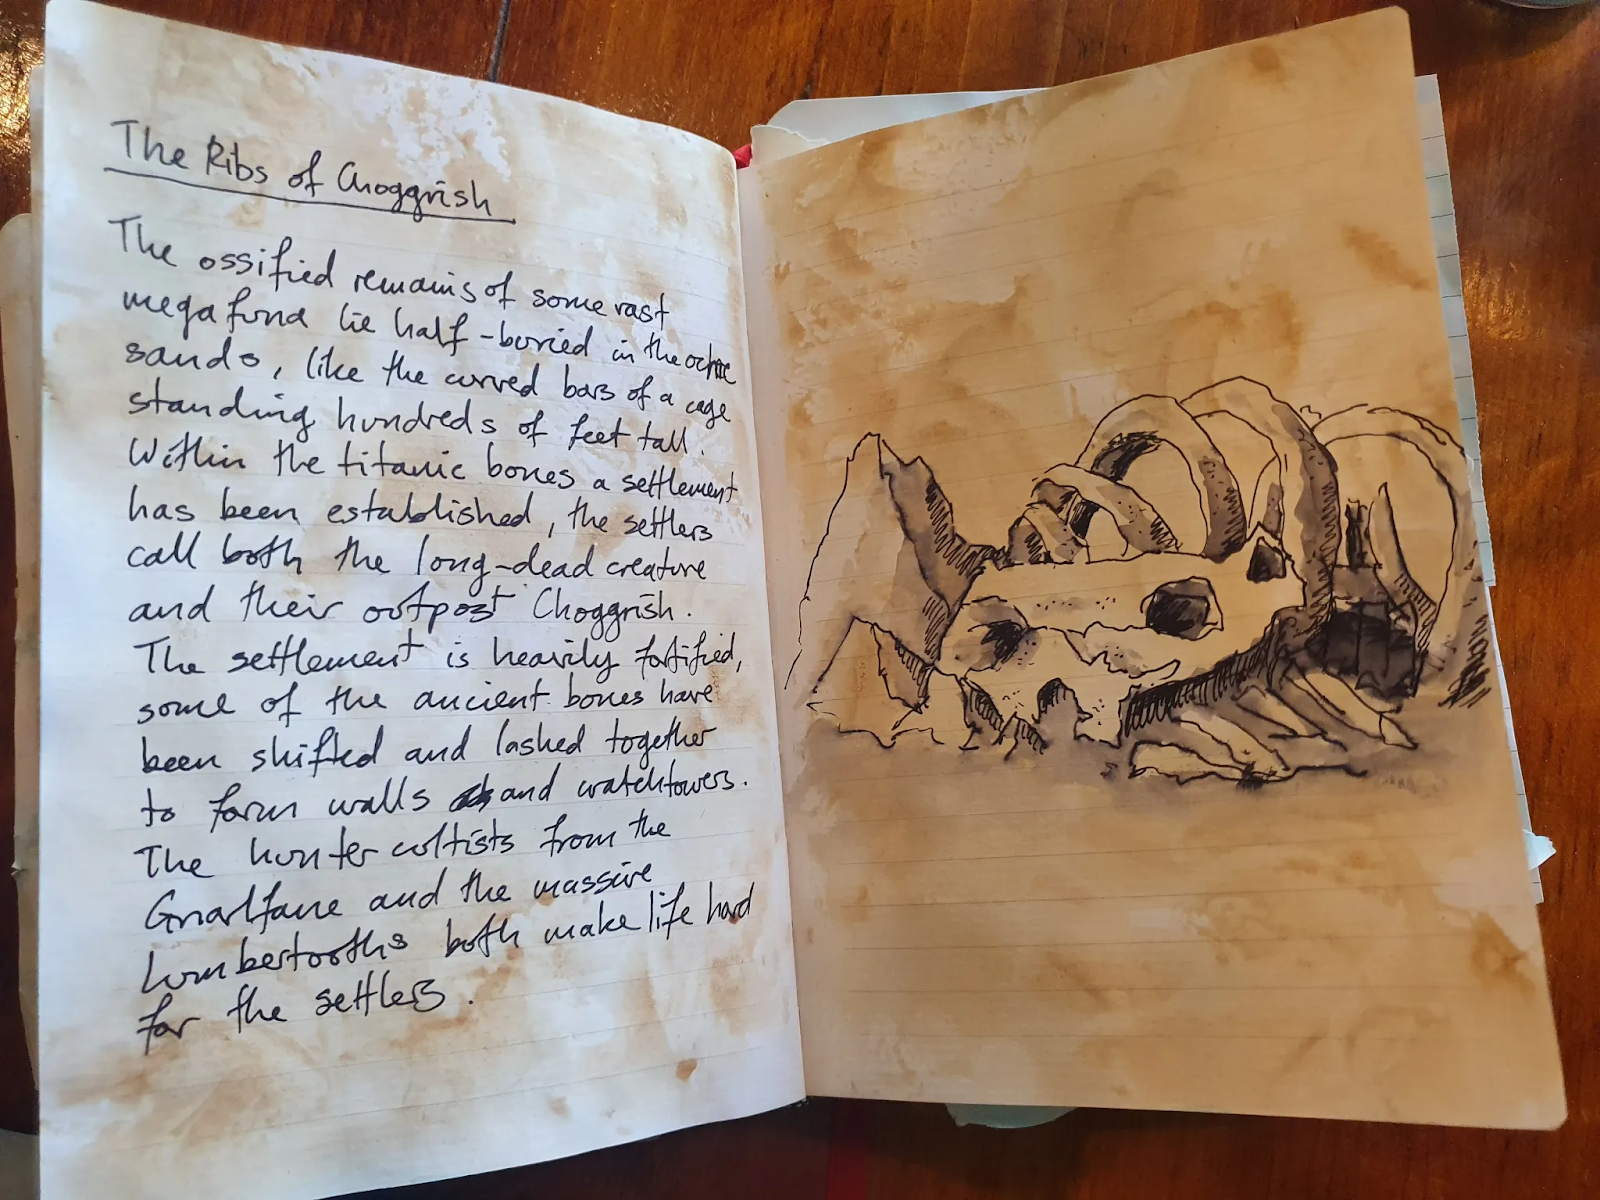 The Ribs of Choggrish
The ossified remains of some vast
megafuna lie half-buried in the ochre
sands, like the curved bars of a cage
standing hundreds of feet tall.
Within the titanic bones a settlement
has been established, the settlers
call both the long-dead creature
and their outpost Choggrish.
The settlement is heavily fortified,
some of the ancient bones have
been shifted and lashed together
to form walls and watchtowers.
The hunter cultists from the
Gnarlfane and the massive
lumbertooths both make life hard
for the settlers.